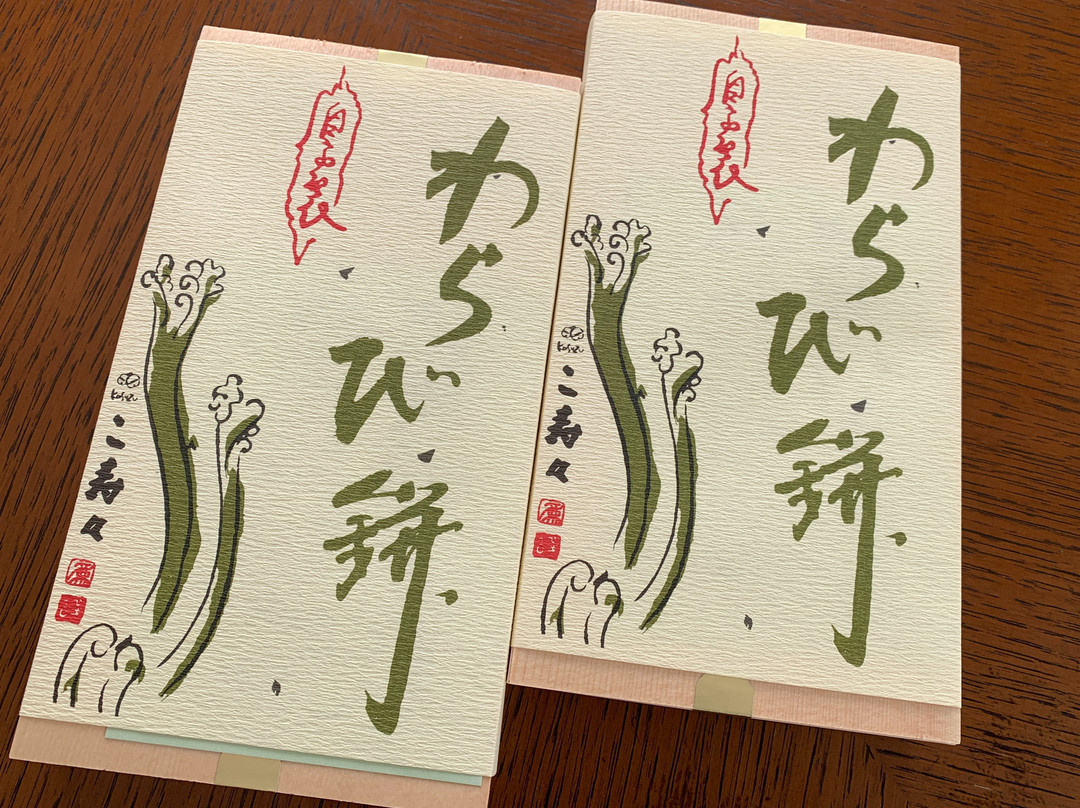 わらび餅
自家製
こ寿々
わらび餅
自家製
こ寿々